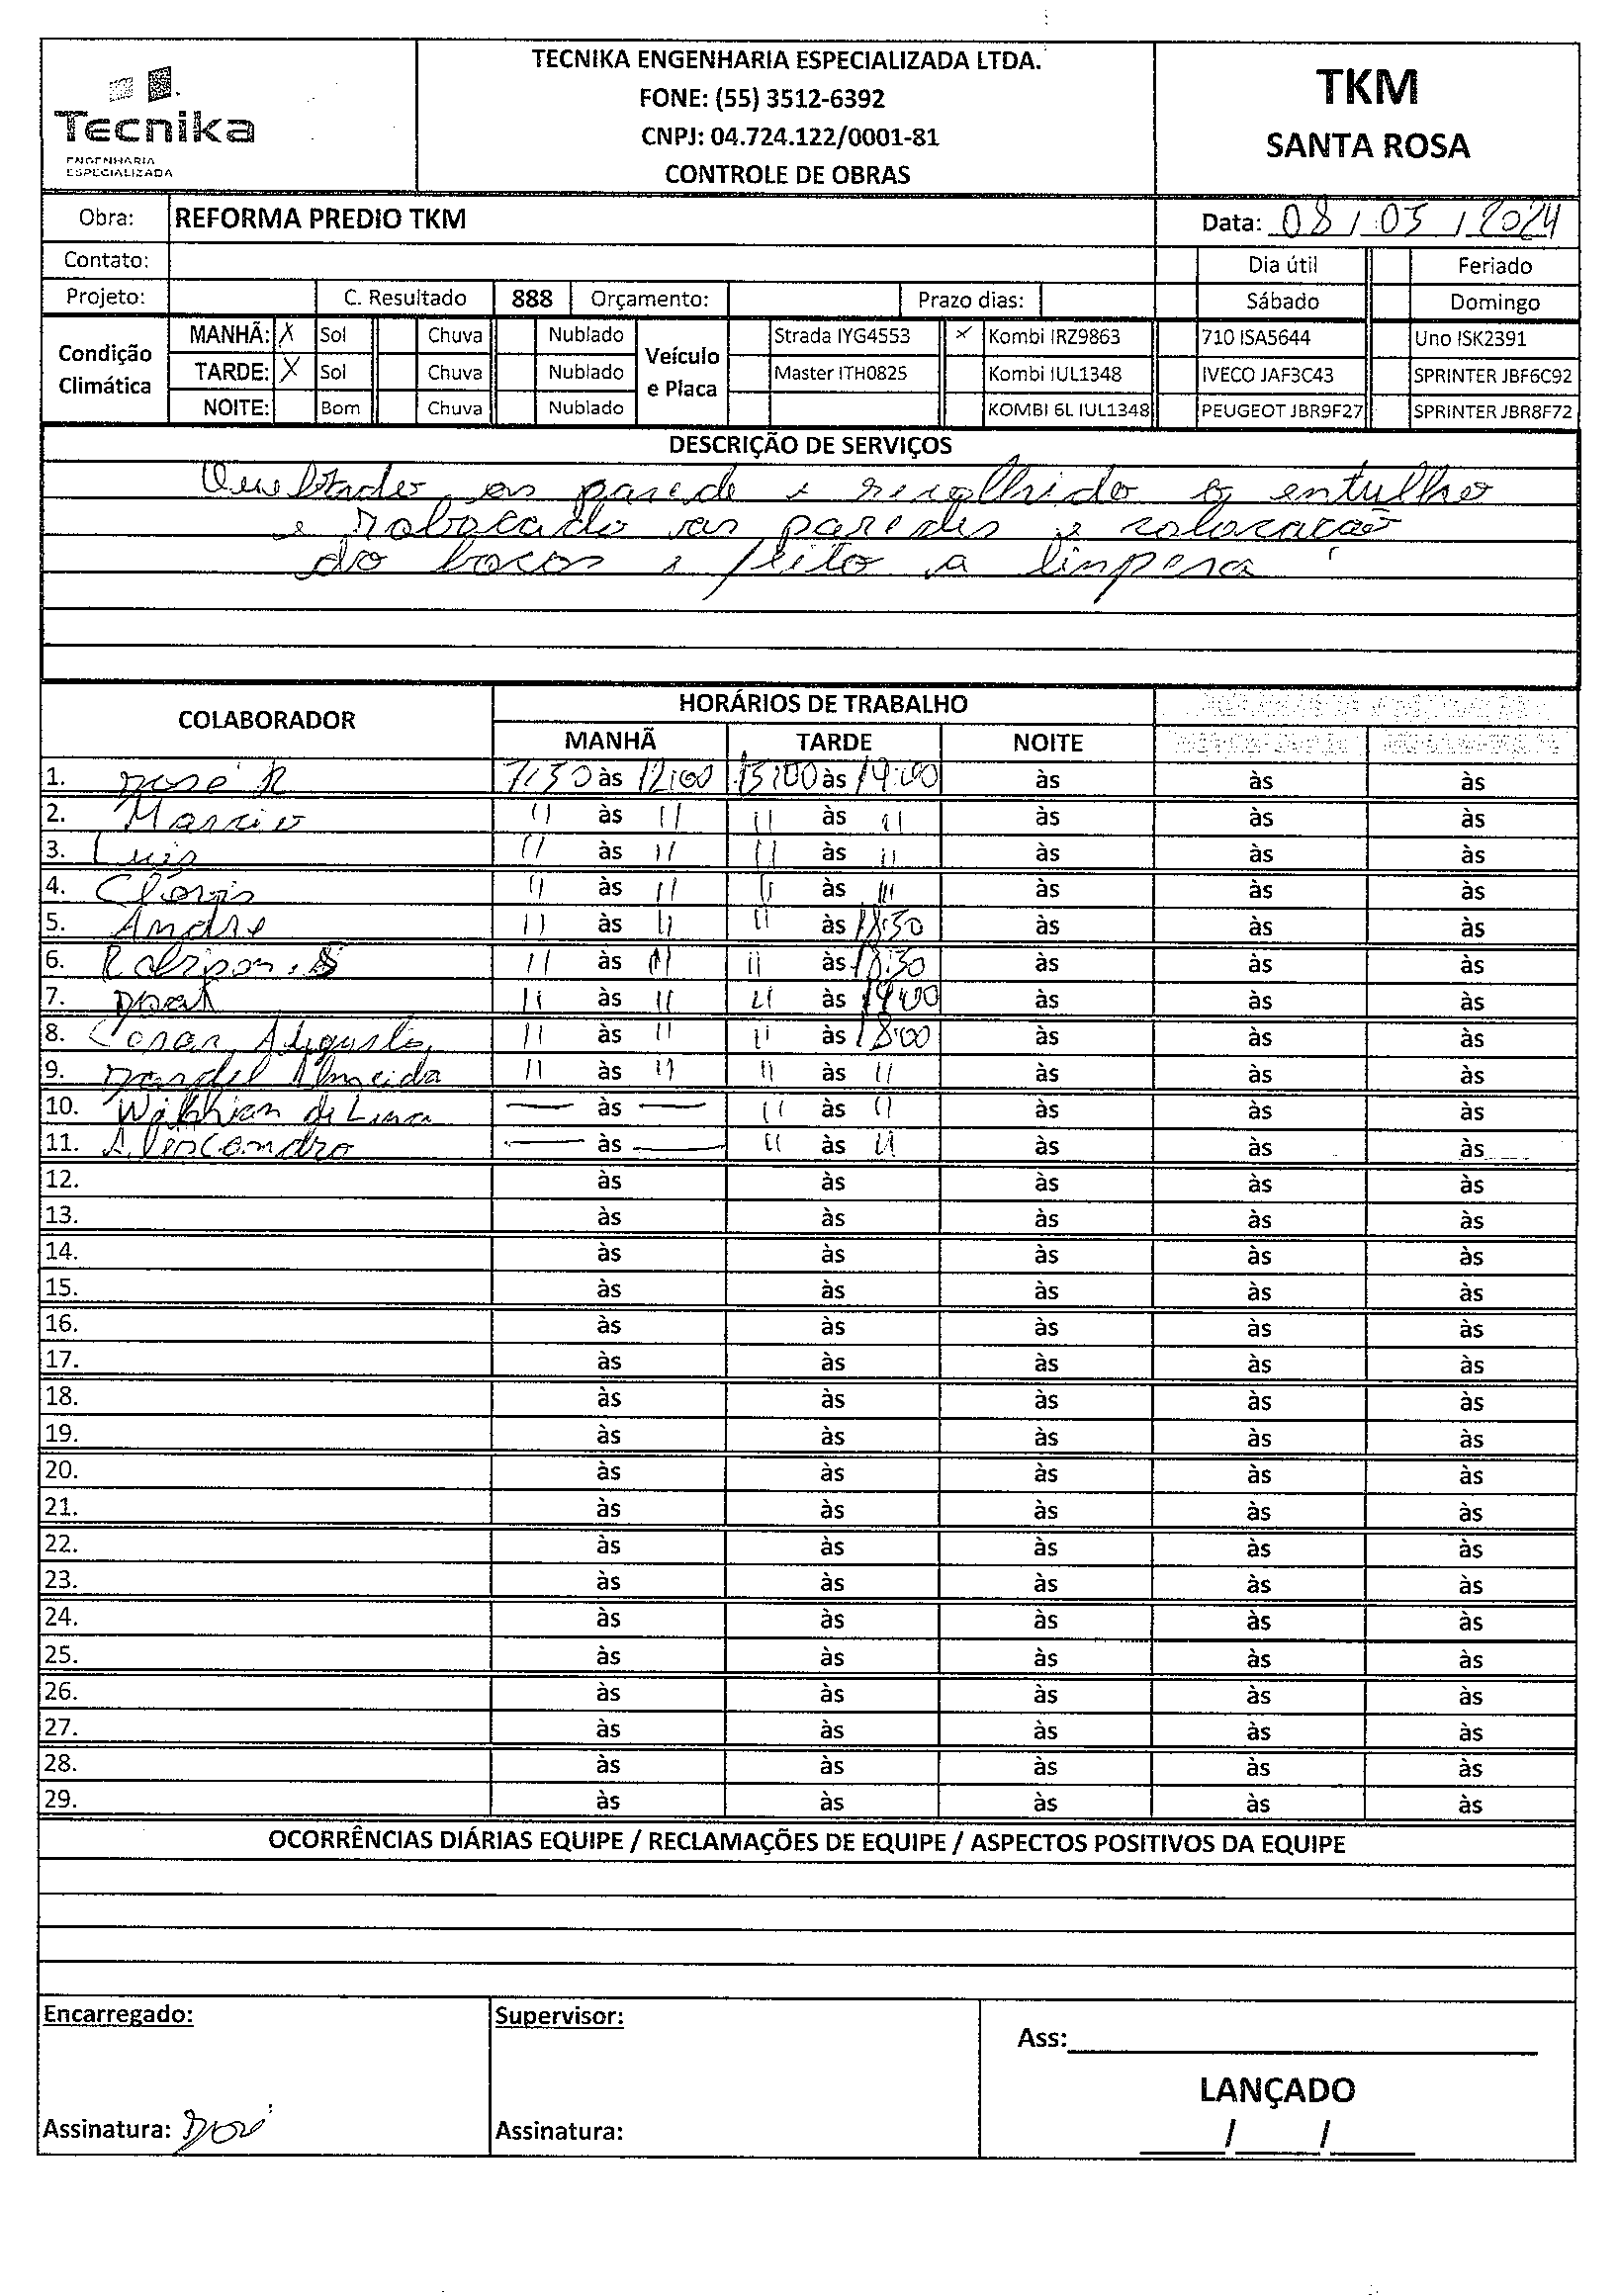 Tecnika
ENGENHARIA
ESPECIALIZADA
TECNIKA ENGENHARIA ESPECIALIZADA LTDA.
FONE: (55) 3512-6392
CNPJ: 04.724.122/0001-81
CONTROLE DE OBRAS
TKM
SANTA ROSA
Obra: REFORMA PREDIO TKM Data: 08/05/2024
Contato: Dia útil Feriado
Projeto: C. Resultado 888 Orçamento: Prazo dias: Sábado Domingo
Condição Climática
MANHÃ: X Sol Chuva Nublado
TARDE: X Sol Chuva Nublado
NOITE: Bom Chuva Nublado
Veículo e Placa
Strada IYG4553 X Kombi IRZ9863 710 ISA5644 Uno ISK2391
Master ITH0825 Kombi IUL1348 IVECO JAF3C43 SPRINTER JBF6C92
KOMBI 6L IUL1348 PEUGEOT JBR9F27 SPRINTER JBR8F72
DESCRIÇÃO DE SERVIÇOS
as parede e recolhido o entulho
e robocado as paredes e colocação
do bocos e feito a limpesa
COLABORADOR HORÁRIOS DE TRABALHO
MANHÃ TARDE NOITE
1. José R 7:30 às 12:00 13:00 às 19:00 às às às
2. Marcio 11 às 11 11 às 11 às às às
3. Luis 11 às 11 11 às 11 às às às
4. Clovis 11 às 11 11 às 11 às às às
5. Andre 11 às 11 11 às 18:30 às às às
6. Robson. S 11 às 11 11 às 18:30 às às às
7. 11 às 11 11 às 19:00 às às às
8. Cesar Augusto 11 às 11 11 às 18:00 às às às
9. Almeida 11 às 11 11 às 11 às às às
10. Willian de Lima — às — 11 às 11 às às às
11. Alescandro — às — 11 às 11 às às às
12. às às às às às
13. às às às às às
14. às às às às às
15. às às às às às
16. às às às às às
17. às às às às às
18. às às às às às
19. às às às às às
20. às às às às às
21. às às às às às
22. às às às às às
23. às às às às às
24. às às às às às
25. às às às às às
26. às às às às às
27. às às às às às
28. às às às às às
29. às às às às às
OCORRÊNCIAS DIÁRIAS EQUIPE / RECLAMAÇÕES DE EQUIPE / ASPECTOS POSITIVOS DA EQUIPE
Encarregado: Supervisor:
Ass:
LANÇADO
Assinatura: José Assinatura:
/ /